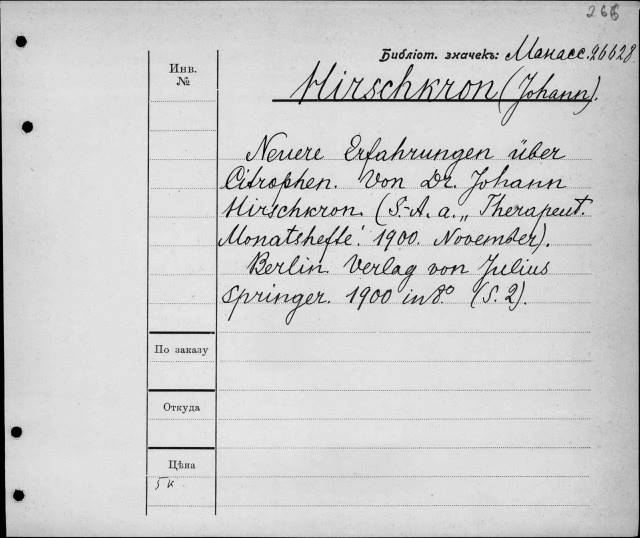 266
Библіот. значекъ: Манасс. 26628
Инв.
№
Hirschkron (Johann).
Neuere Erfahrungen über
Citrophen. Von Dr. Johann
Hirschkron. (S.-A. a. „Therapeut.
Monatshefte“. 1900. November).
Berlin. Verlag von Julius
Springer. 1900 in 8.° (S. 2).
По заказу
Откуда
Цѣна
5 к